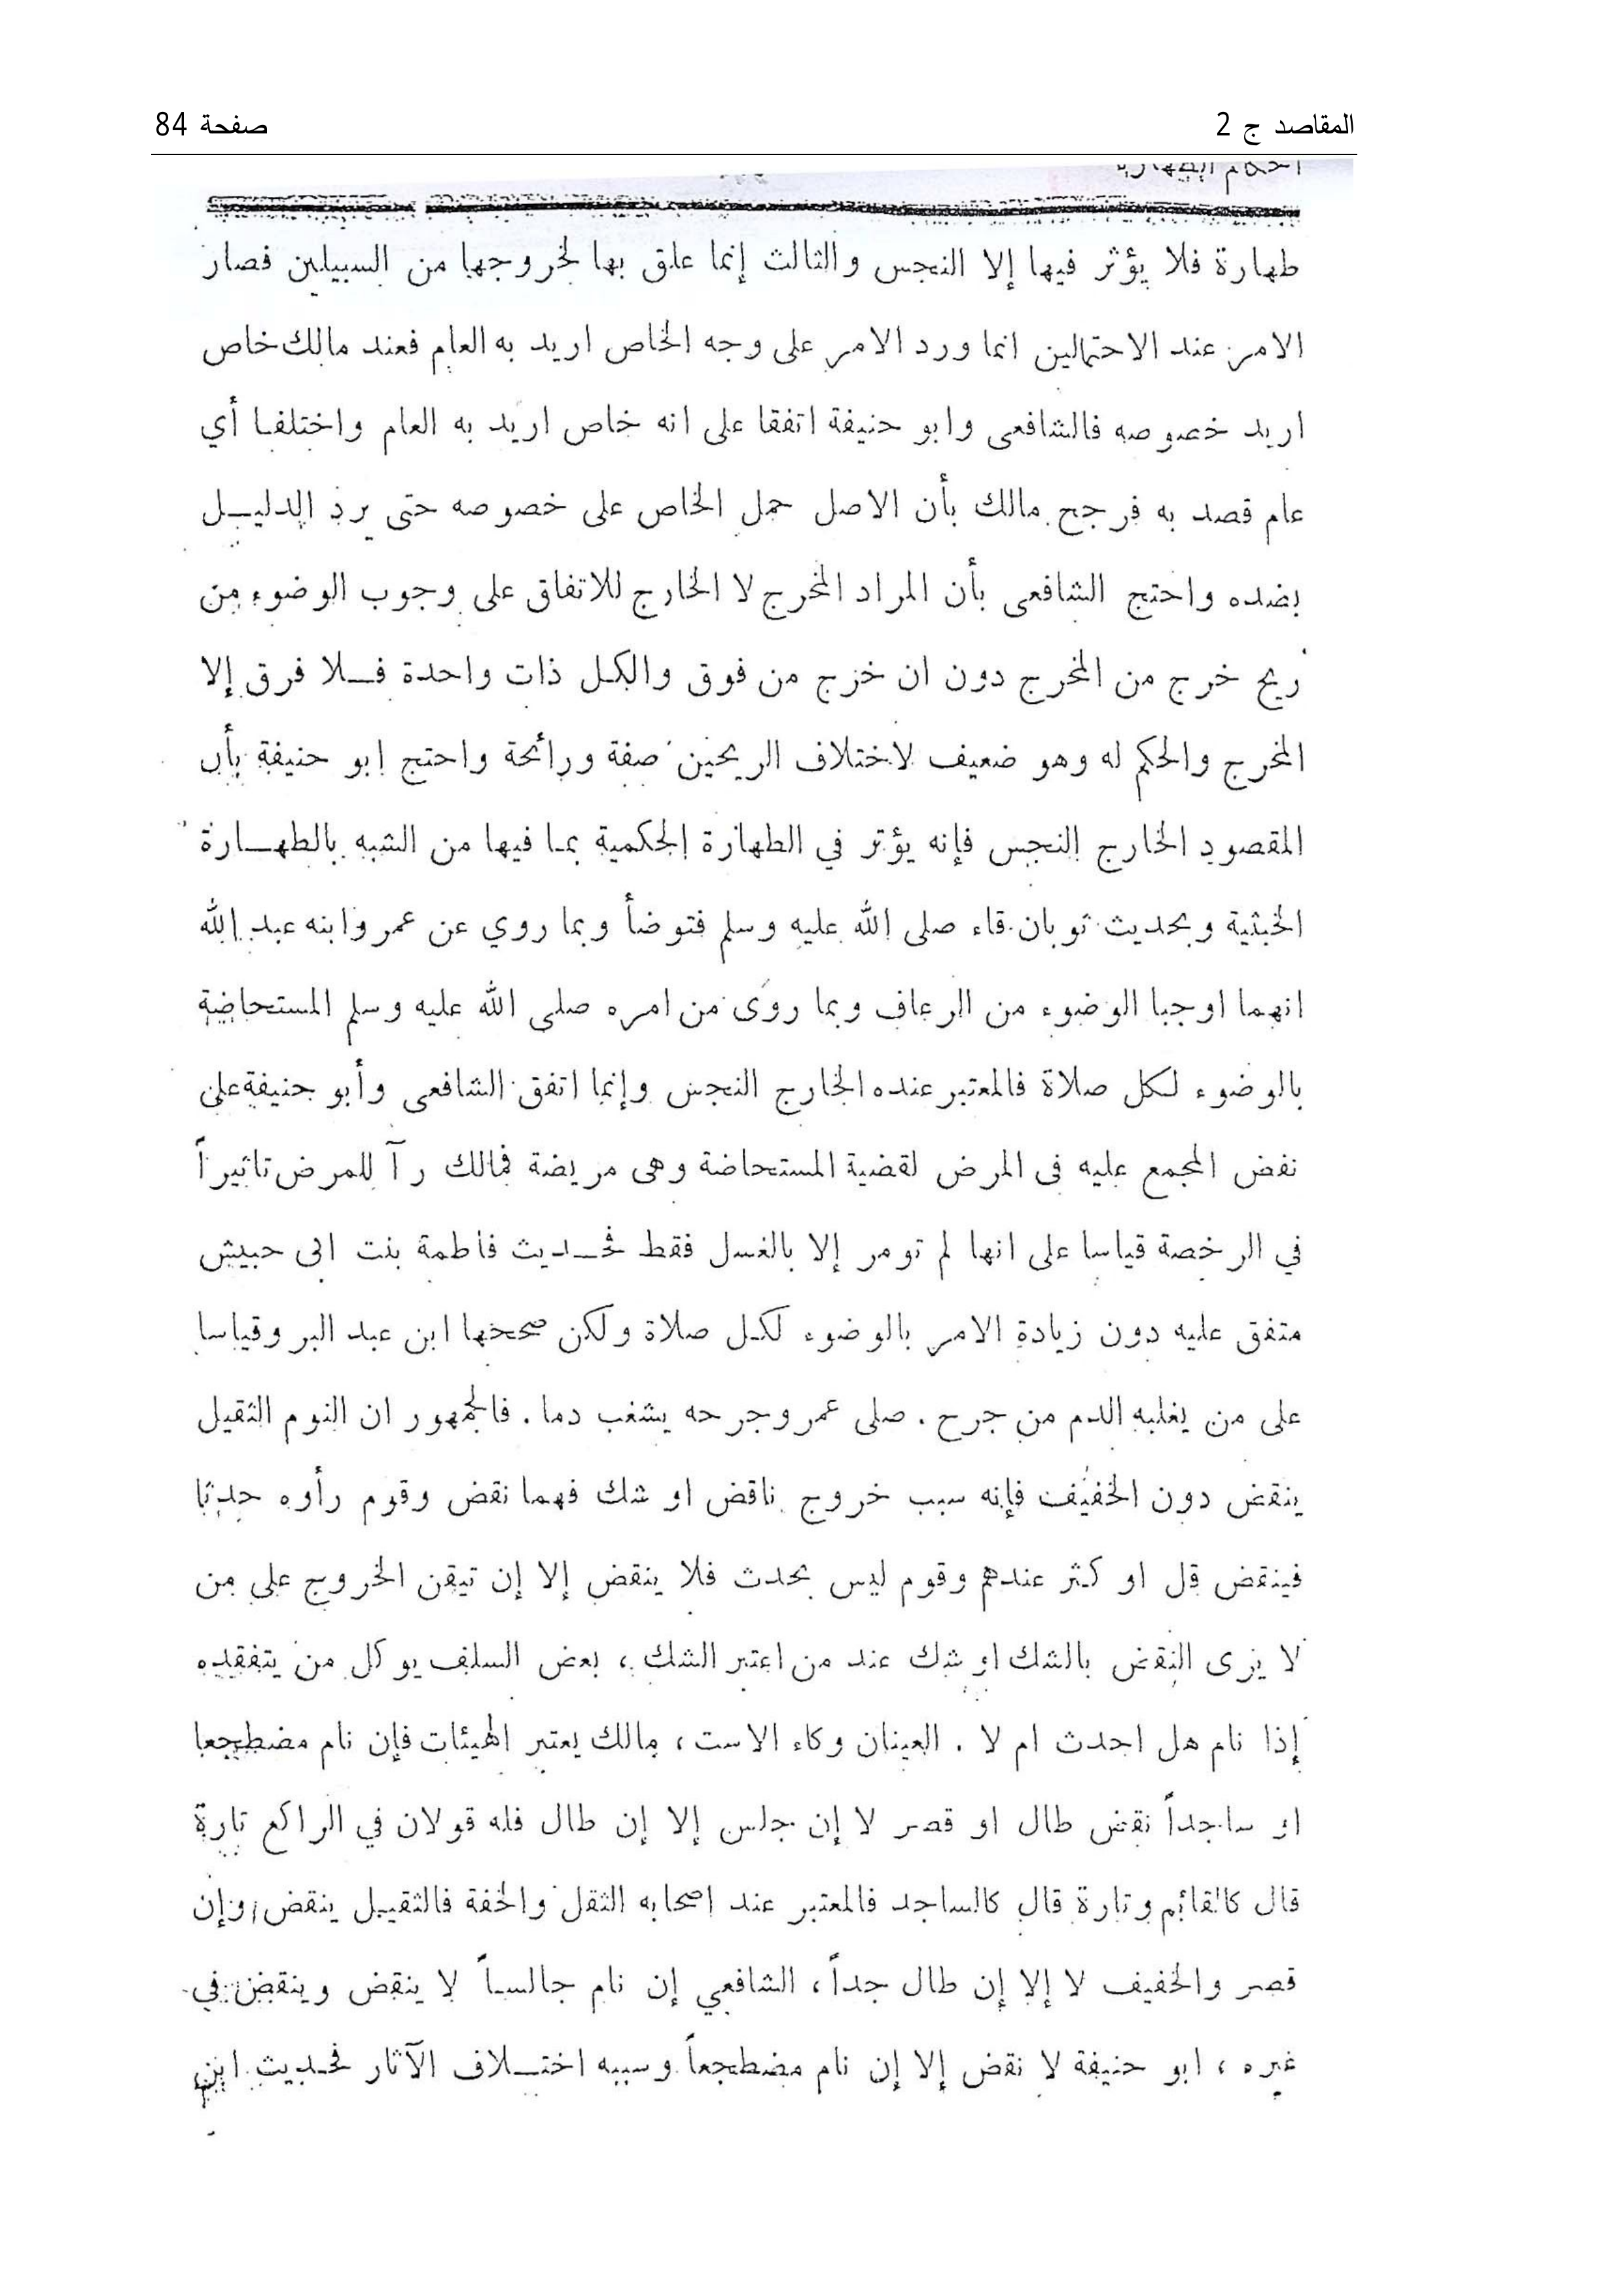 المقاصد ج 2 صفحة 84
احكام الطهارة
طهارة فلا يؤثر فيها إلا النجس والثالث إنما علق بها لخروجها من السبيلين فصار
الامر عند الاحتمالين انما ورد الامر على وجه الخاص اريد به العام فعند مالك خاص
اريد خصوصه فالشافعى وابو حنيفة اتفقا على انه خاص اريد به العام واختلفا أي
عام قصد به فرجح مالك بأن الاصل حمل الخاص على خصوصه حتى يرد الدليل
بضده واحتج الشافعى بأن المراد المخرج لا الخارج للاتفاق على وجوب الوضوء من
ريح خرج من المخرج دون ان خرج من فوق والكل ذات واحدة فلا فرق إلا
المخرج والحكم له وهو ضعيف لاختلاف الريحين صفة ورائحة واحتج ابو حنيفة بأن
المقصود الخارج النجس فإنه يؤثر في الطهارة الحكمية بما فيها من الشبه بالطهارة
الخبثية وبحديث ثوبان قاء صلى الله عليه وسلم فتوضأ وبما روي عن عمر وابنه عبد الله
انهما اوجبا الوضوء من الرعاف وبما روى من امره صلى الله عليه وسلم المستحاضة
بالوضوء لكل صلاة فالمعتبر عنده الخارج النجس وإنما اتفق الشافعى وأبو حنيفة على
نفض المجمع عليه فى المرض لقضية المستحاضة وهى مريضة فمالك رآ للمرض تاثيراً
في الرخصة قياسا على انها لم تومر إلا بالغسل فقط فحديث فاطمة بنت ابى حبيش
متفق عليه دون زيادة الامر بالوضوء لكل صلاة ولكن صححها ابن عبد البر وقياسا
على من يغلبه الدم من جرح . صلى عمر وجرحه يشغب دما . فالجمهور ان النوم الثقيل
ينقض دون الخفيف فإنه سبب خروج ناقض او شك فهما نقض وقوم رأوه حدثا
فينقض قل او كثر عندهم وقوم ليس بحدث فلا ينقض إلا إن تيقن الخروج على من
لا يرى النقض بالشك او شك عند من اعتبر الشك ، بعض السلف يوكل من يتفقده
إذا نام هل احدث ام لا . العينان وكاء الاست ، مالك يعتبر الهيئات فإن نام مضطجعا
او ساجداً نقض طال او قصر لا إن جلس إلا إن طال فله قولان في الراكع تارة
قال كالقائم وتارة قال كالساجد فالمعتبر عند اصحابه الثقل والخفة فالثقيل ينقض وإن
قصر والخفيف لا إلا إن طال جداً ، الشافعي إن نام جالساً لا ينقض وينقض في
غيره ، ابو حنيفة لا نقض إلا إن نام مضطجعاً وسببه اختلاف الآثار فحديث ابن